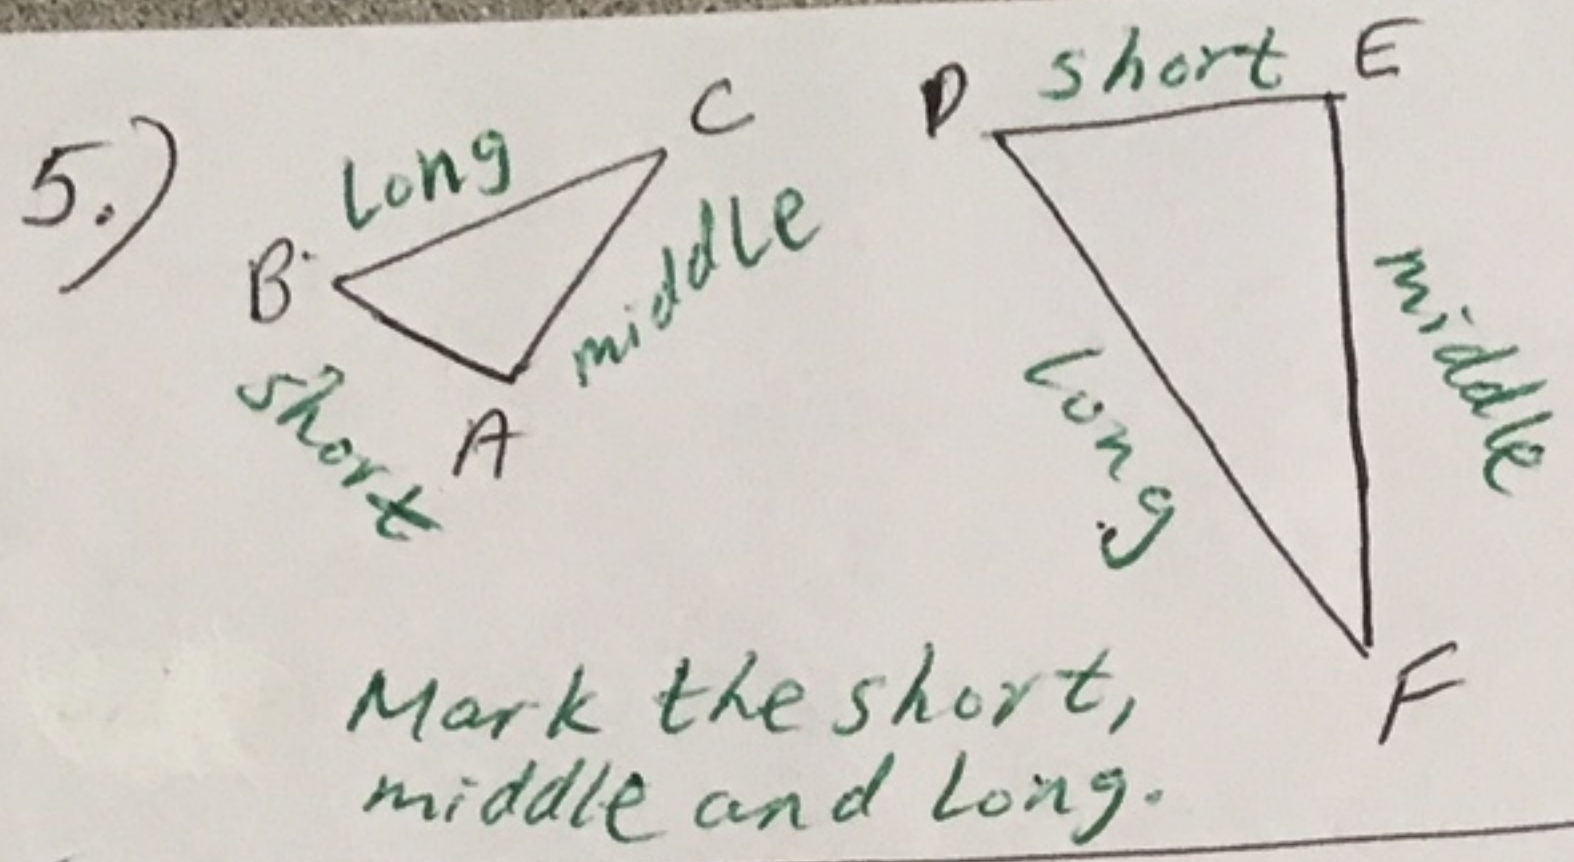 5.)
B
Long
C
middle
short
A
D
short
E
Long
middle
F
Mark the short,
middle and Long.